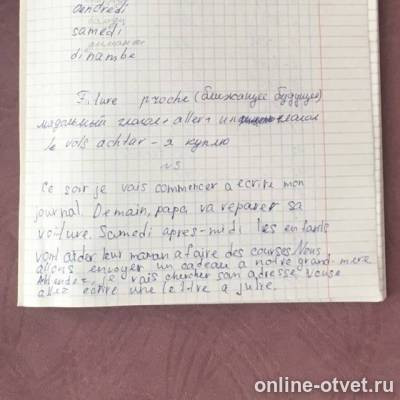 vendredi
samedi
dimanche
dinambe
Future proche (ближайщее будущее)
модольный глагол + aller + ин глагол
Je vais achtar - я куплю
N3
Ce soir je vais commencer a ecrire mon
journal. Demain, papa va reparer sa
voiture. Samedi apres-midi les enfants
vont aider leur maman a faire des courses. Nous
allons envoyer un cadeau a notre grand-mere
Attendez, je vais chercher son adresse, vouse
allez ecrire une lettre a Julie.
online-otvet.ru